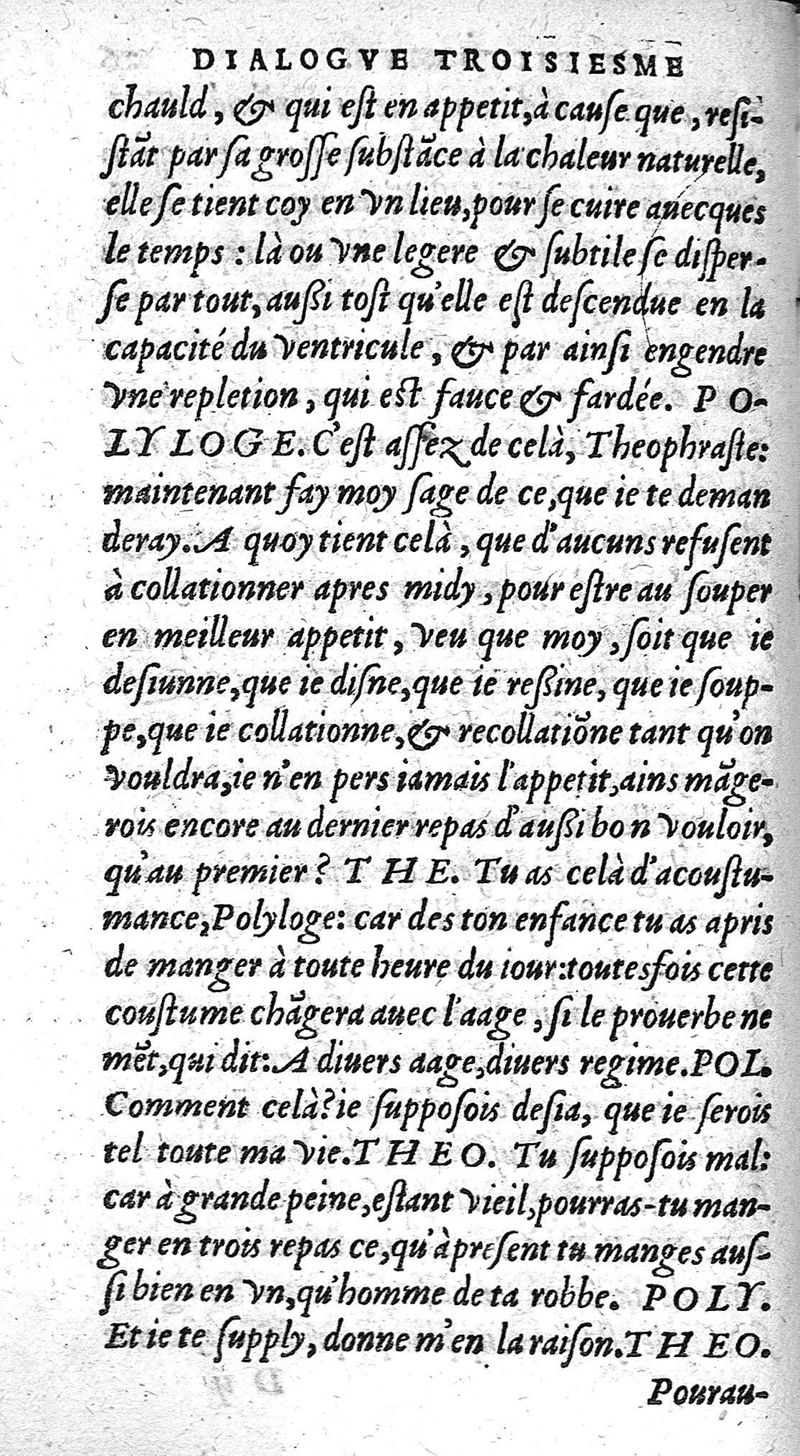 DIALOGVE TROISIESME
chauld, & qui eſt en appetit, à cauſe que, reſi-
ſtãt par ſa groſſe ſubſtãce à la chaleur naturelle,
elle ſe tient coy en vn lieu, pour ſe cuire auecques
le temps : là ou vne legere & ſubtile ſe diſper-
ſe par tout, außi toſt qu'elle eſt deſcendue en la
capacité du ventricule, & par ainſi engendre
vne repletion, qui eſt fauce & fardée. P O-
L Y L O G E. C'eſt aſſez de celà, Theophraſte:
maintenant fay moy ſage de ce, que ie te deman
deray. A quoy tient celà, que d'aucuns refuſent
à collationner apres midy, pour eſtre au ſouper
en meilleur appetit, veu que moy, ſoit que ie
deſiunne, que ie diſne, que ie reßine, que ie ſoup-
pe, que ie collationne, & recollatiõne tant qu'on
vouldra, ie n'en pers iamais l'appetit, ains mãge-
rois encore au dernier repas d'außi bon vouloir,
qu'au premier? T H E. Tu as celà d'acouſtu-
mance, Polyloge: car des ton enfance tu as apris
de manger à toute heure du iour: toutesfois cette
couſtume chãgera auec l'aage, ſi le prouerbe ne
mẽt, qui dit: A diuers aage, diuers regime. POL.
Comment celà? ie ſuppoſois deſia, que ie ſerois
tel toute ma vie. T H E O. Tu ſuppoſois mal:
car à grande peine, eſtant vieil, pourras-tu man-
ger en trois repas ce, qu'à preſent tu manges auſ-
ſi bien en vn, qu'homme de ta robbe. P O L Y.
Et ie te ſupply, donne m'en la raiſon. T H E O.
Pourau-